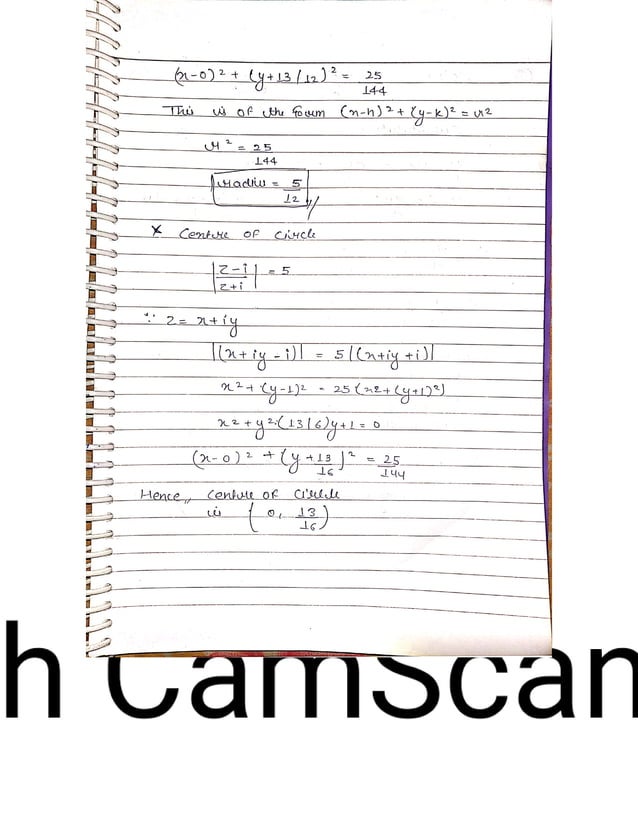 (x-0)² + (y+13/12)² = 25/144
This is of the form (x-h)² + (y-k)² = r²
r² = 25/144
radius = 5/12 //
× Centre of circle
|z-i/z+i| = 5
∵ z = x+iy
|(x+iy-i)| = 5|(x+iy+i)|
x² + (y-1)² = 25(x²+(y+1)²)
x² + y² + (13/6)y + 1 = 0
(x-0)² + (y+13/16)² = 25/144
Hence,, centre of circle
is (0, 13/16)
h CamScan